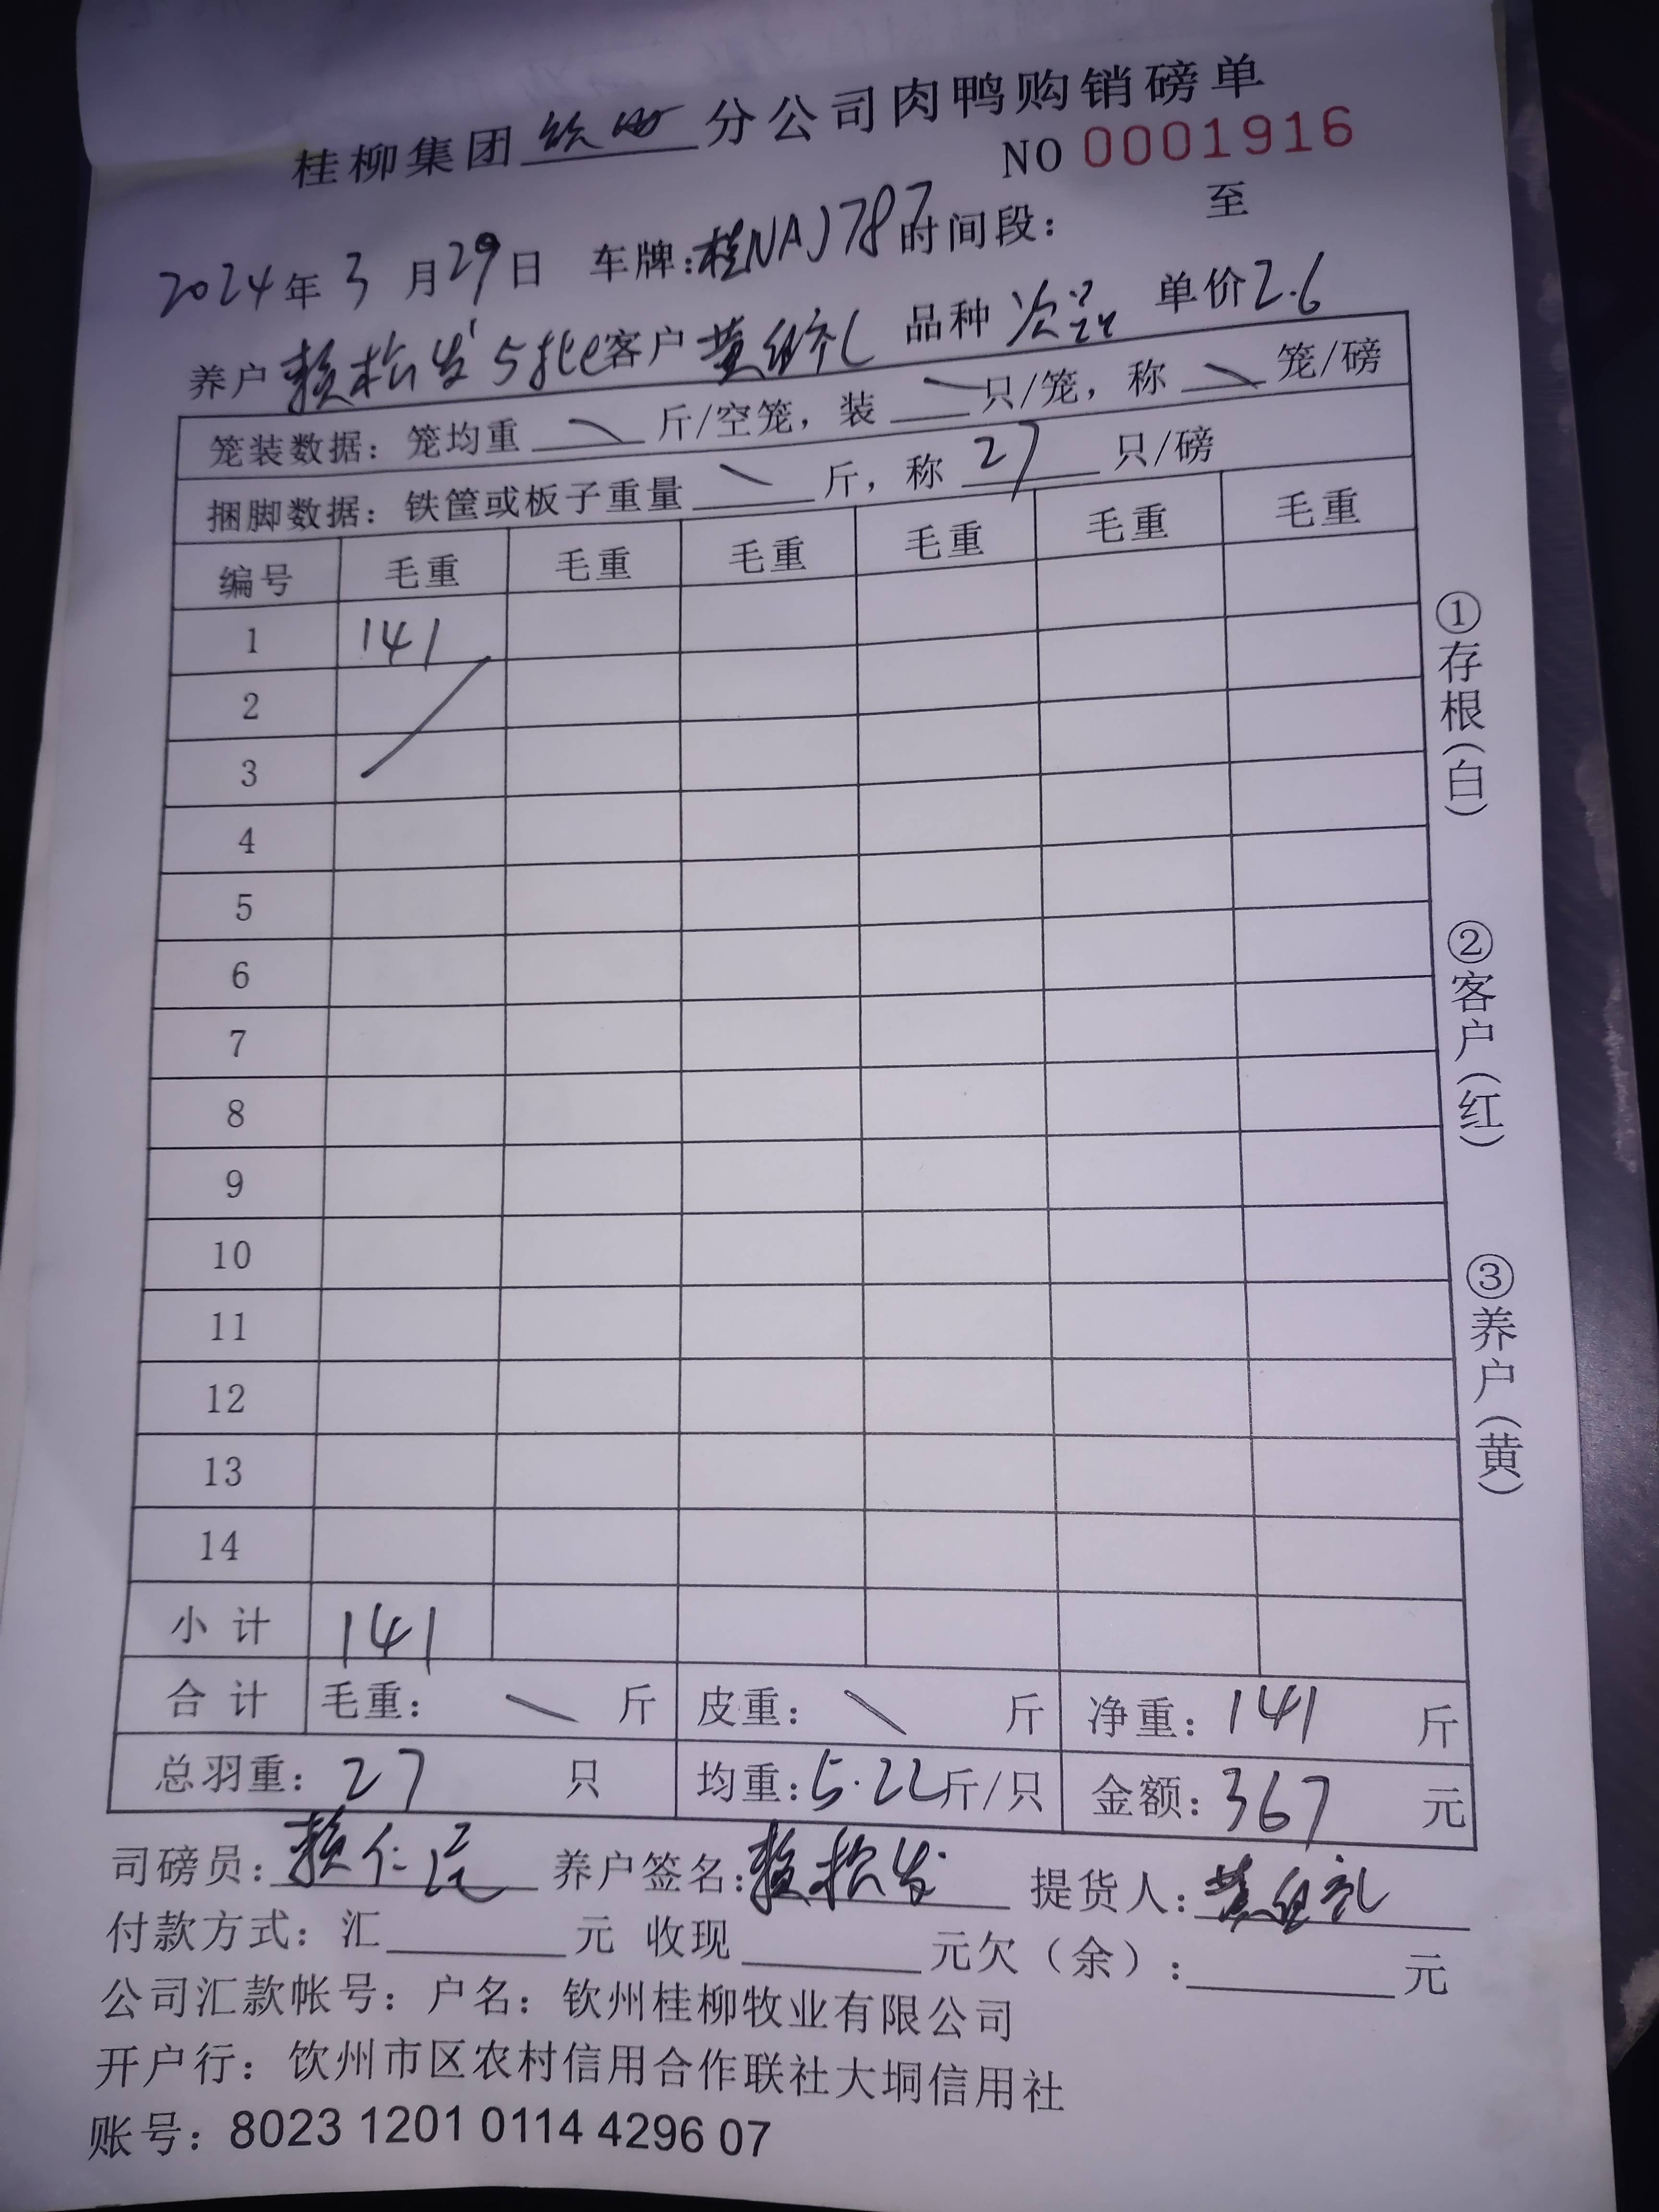 桂柳集团钦州分公司肉鸭购销磅单
NO 0001916
2024年3月29日 车牌:桂NAJ787时间段: 至
养户 赖松发5批客户 黄 礼 品种 次品 单价2.6
笼装数据: 笼均重 \ 斤/空笼, 装 \ 只/笼, 称 \ 笼/磅
捆脚数据: 铁筐或板子重量 \ 斤, 称 27 只/磅
编号 毛重 毛重 毛重 毛重 毛重 毛重
1 141
2
3
4
5
6
7
8
9
10
11
12
13
14
小计 141
合计 毛重: \ 斤 皮重: \ 斤 净重: 141 斤
总羽重: 27 只 均重:5.22斤/只 金额:367 元
司磅员: 赖仁 养户签名:赖松发 提货人: 黄 礼
付款方式: 汇 元 收现 元欠(余): 元
公司汇款帐号: 户名: 钦州桂柳牧业有限公司
开户行: 饮州市区农村信用合作联社大垌信用社
账号: 8023 1201 0114 4296 07
①存根(白)
②客户(红)
③养户(黄)